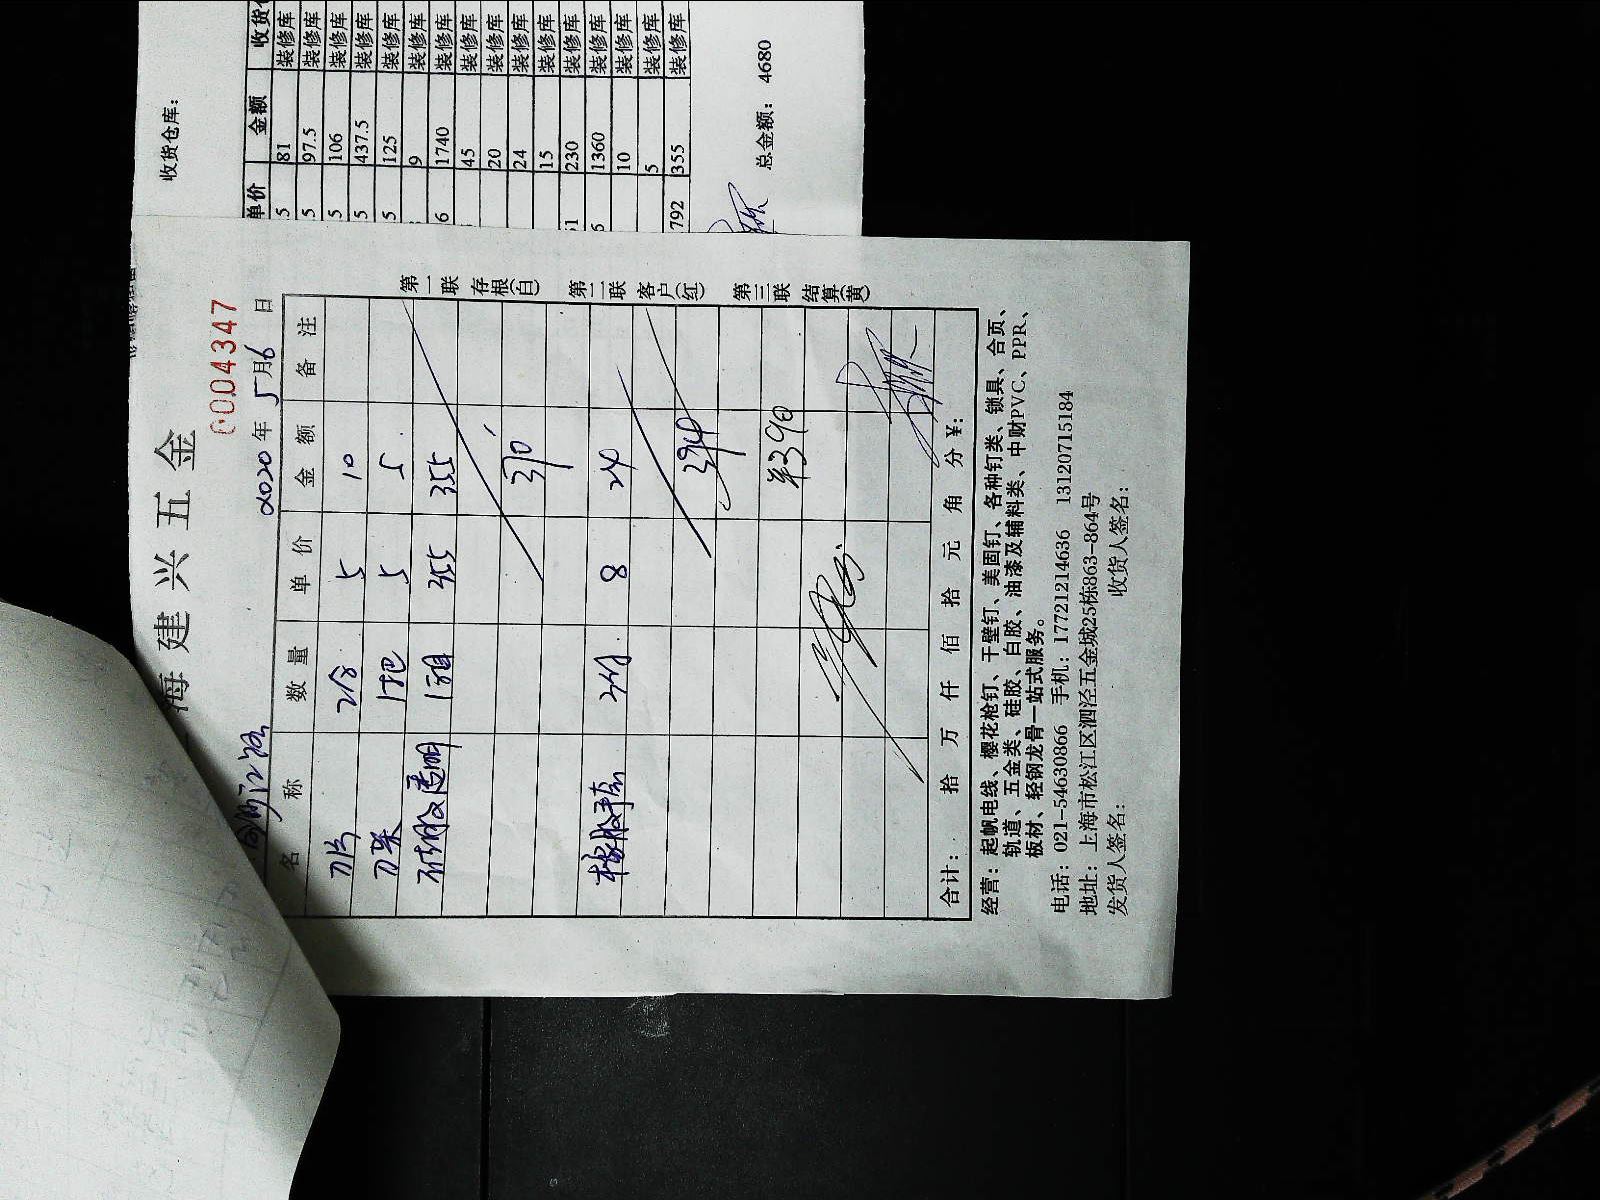 收货仓库：
单价 金额
5 81 装修库
5 97.5 装修库
5 106 装修库
5 437.5 装修库
5 125 装修库
9 装修库
6 1740 装修库
45 装修库
20 装修库
24 装修库
15 装修库
51 230 装修库
6 1360 装修库
10 装修库
5 装修库
792 355 装修库
总金额：4680
海建兴五金
0004347
2020年5月6日
名称 数量 单价 金额 备注
刀片 2合 5 10
刀架 1把 5 5
硅胶透明 1箱 355 355
370
橡胶手套 3付 8 24
394
¥390
合计： 拾 万 仟 佰 拾 元 角 分 ¥：
第一联 存根(白)
第二联 客户(红)
第三联 结算(黄)
经营：起帆电线、樱花枪钉、干壁钉、美固钉、各种钉类、锁具、合页、
轨道、五金类、硅胶、白胶、油漆及辅料类、中财PVC、PPR、
板材、轻钢龙骨一站式服务。
电话：021-54630866 手机：17721214636 13120715184
地址：上海市松江区泗泾五金城25栋863-864号
发货人签名： 收货人签名：